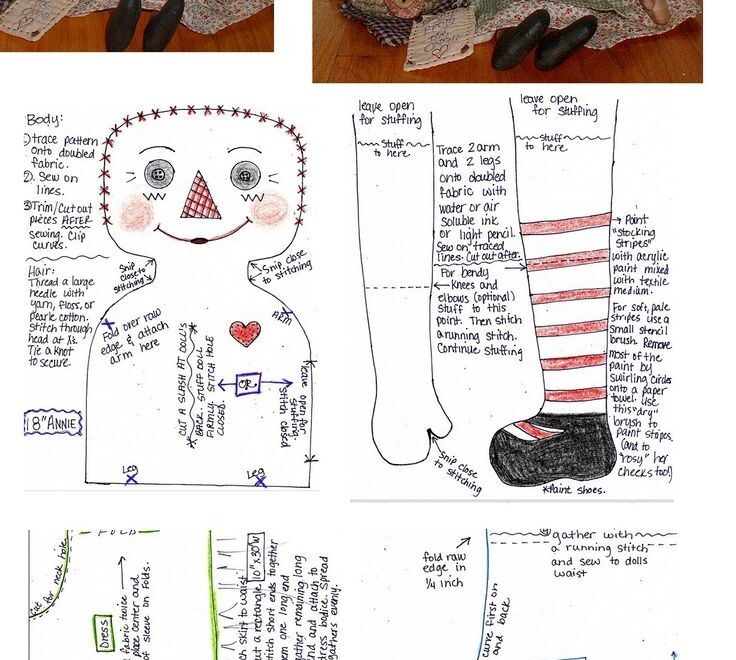 Body:
1) trace pattern
onto doubled
fabric.
2). Sew on
lines.
3) Trim/Cut out
pieces AFTER
sewing. Clip
curves.
Hair:
Thread a large
needle with
yarn, floss, or
pearle cotton.
Stitch through
head at Xs.
Tie a knot
to secure.
18" ANNIE
Snip
close to
stitching
Snip close
to stitching
Fold over raw
edge & attach
arm here
ARM
CUT A SLASH AT DOLL'S
BACK. STUFF DOLL
FIRMLY. STITCH HOLE
CLOSED.
OR
leave open for
stuffing
stitch closed
Leg
Leg
leave open
for stuffing
stuff
to here
Trace 2 arm
and 2 legs
onto doubled
fabric with
water or air
soluble ink
or light pencil.
Sew on traced
lines. Cut out after.
For bendy
Knees and
elbows (optional)
stuff to this
point. Then stitch
a running stitch.
Continue stuffing
Snip close
to stitching
leave open
for stuffing
stuff
to here
Paint
"stocking
stripes"
with acrylic
paint mixed
with textile
medium.
For soft, pale
stripes use a
small stencil
brush. Remove
most of the
paint by
swirling circles
onto a paper
towel. Use
this "dry"
brush to
paint stripes.
(and to
"rosy" her
cheeks too!)
*Paint shoes.
Cut for neck hole
FOLD
Dress
fabric twice
place center and
of sleeve on folds.
ch skirt to waist
ut a rectangle 10" x 30" W
titch short ends together
em one long end
ather remaining long
nd and attach to
dress bodice. Spread
gathers evenly.
fold raw
edge in
1/4 inch
gather with
a running stitch
and sew to dolls
waist
curve first on
and back